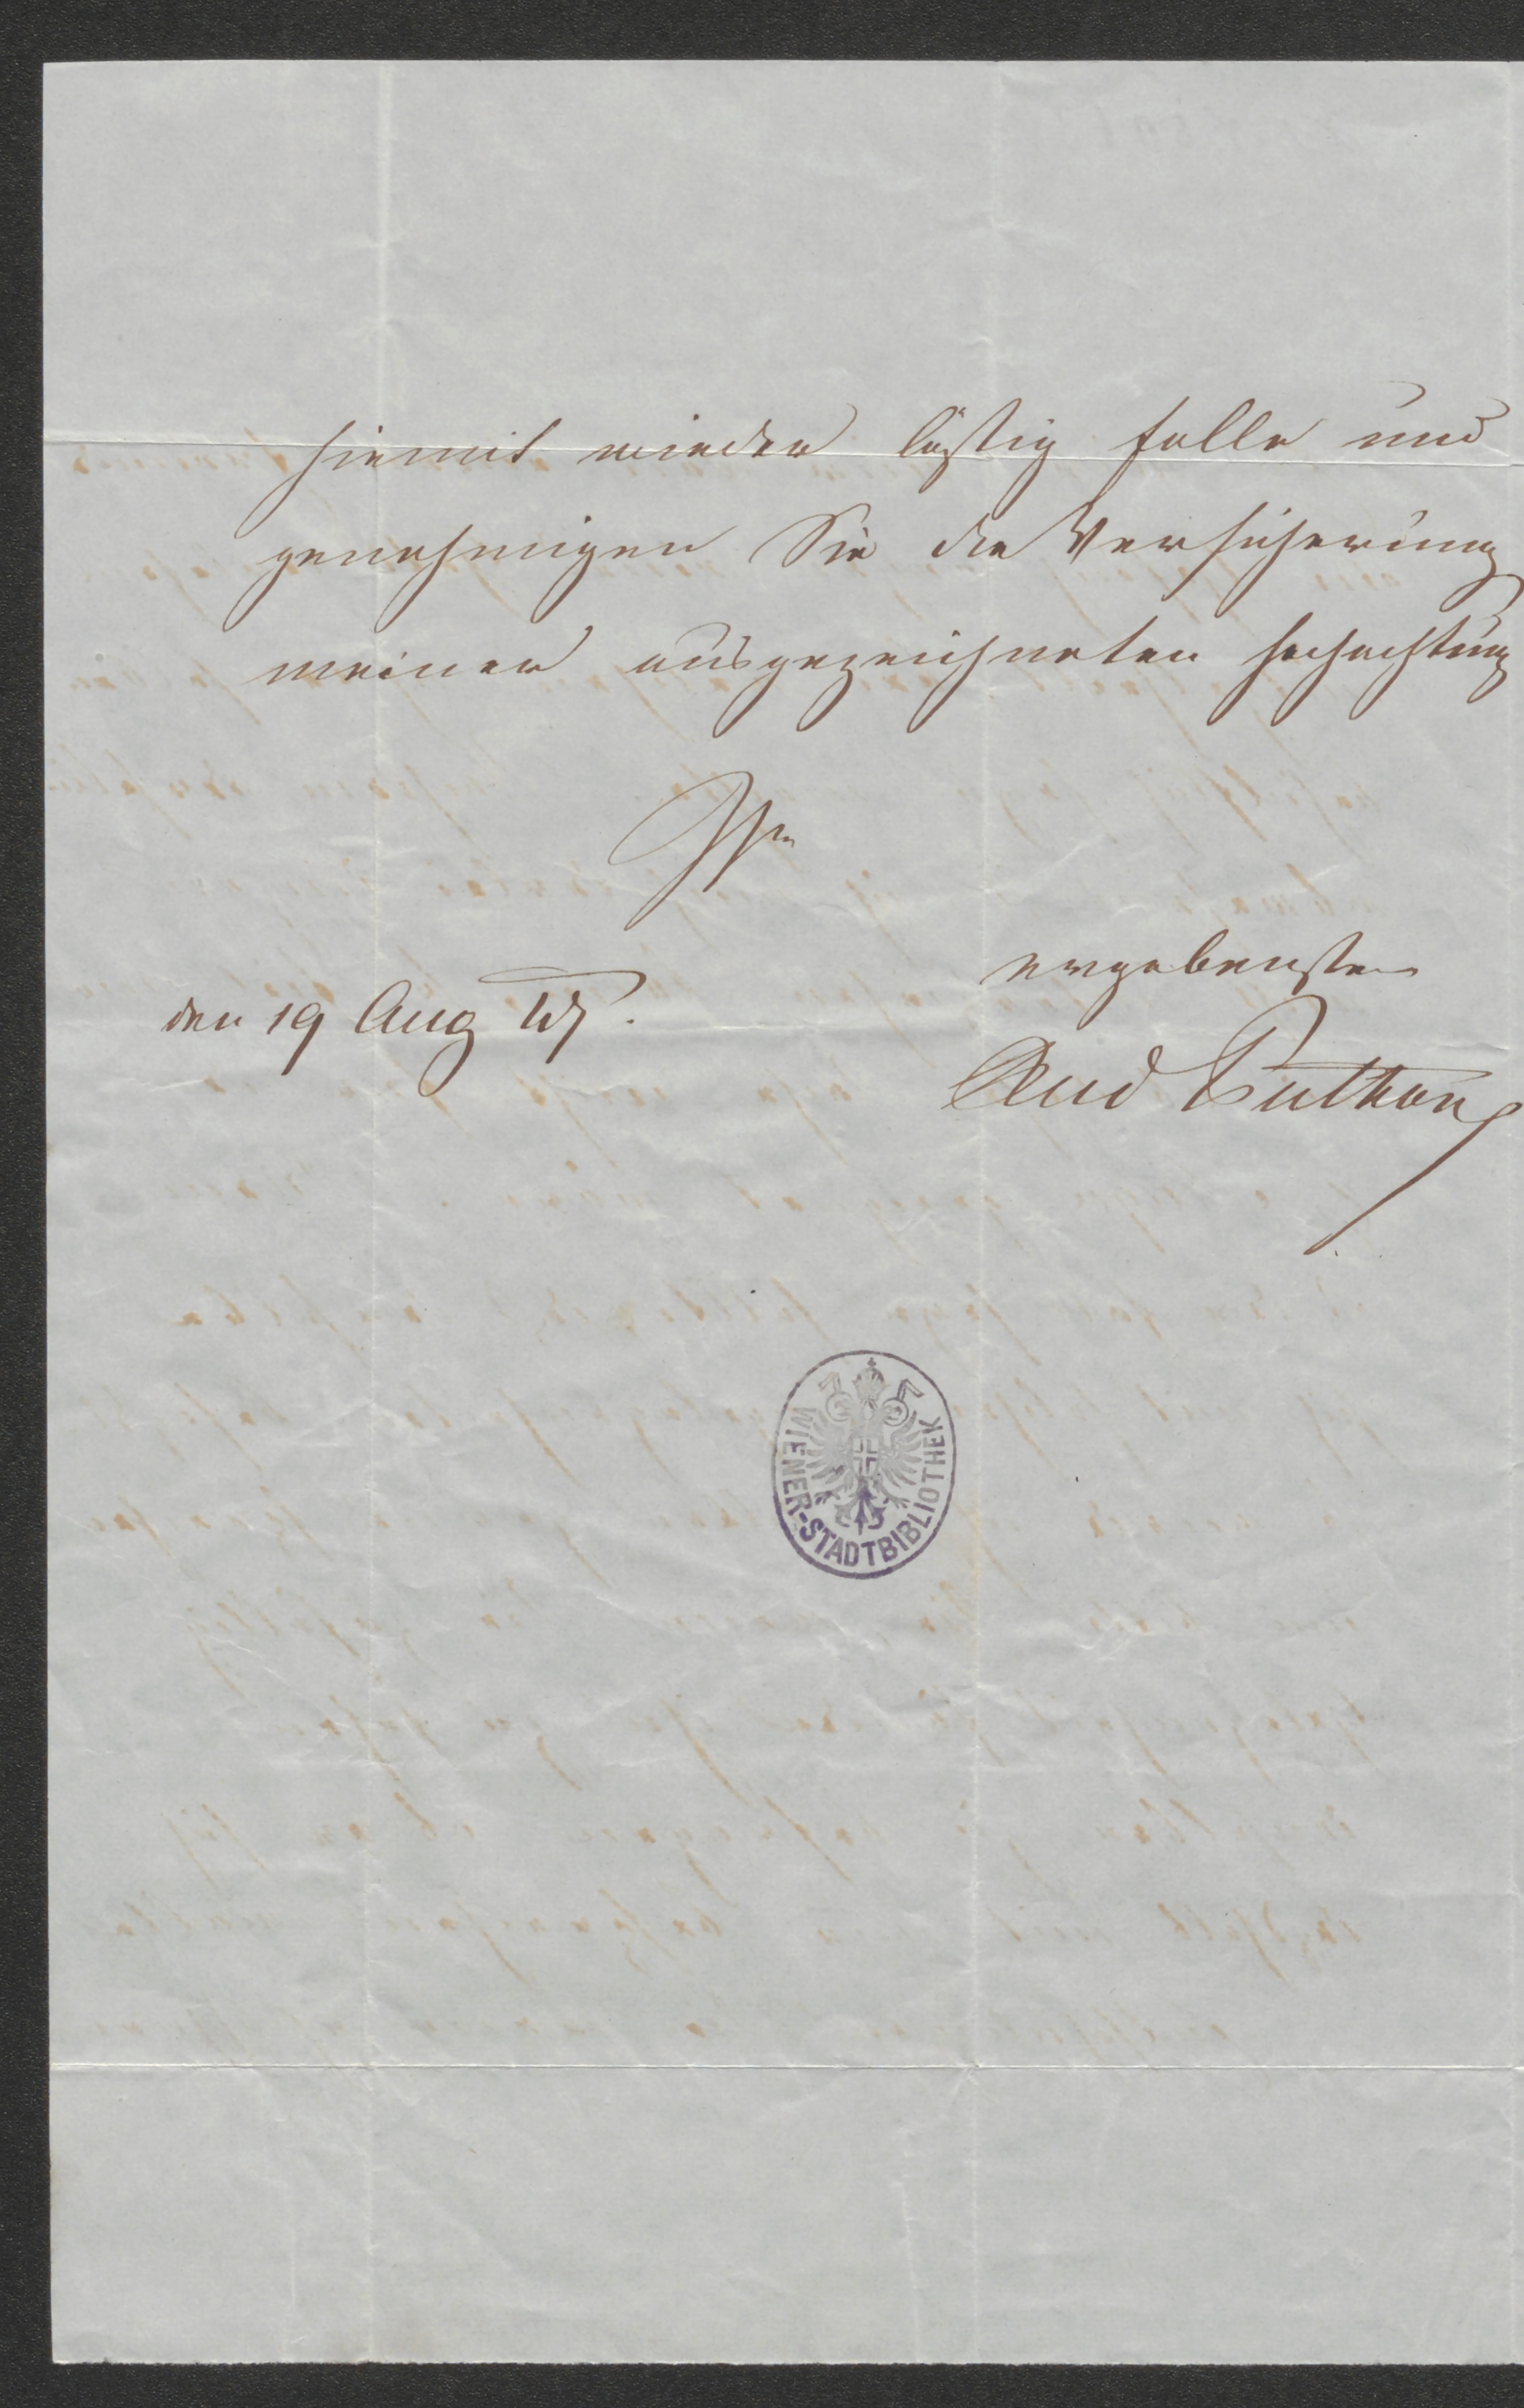 hiemit wieder lästig falle und
genehmigen Sie die Versicherung
meiner ausgezeichneten Hochachtung
Ihr
ergebenster
den 19 Aug
Rud Puthon
WIENER-STADTBIBLIOTHEK